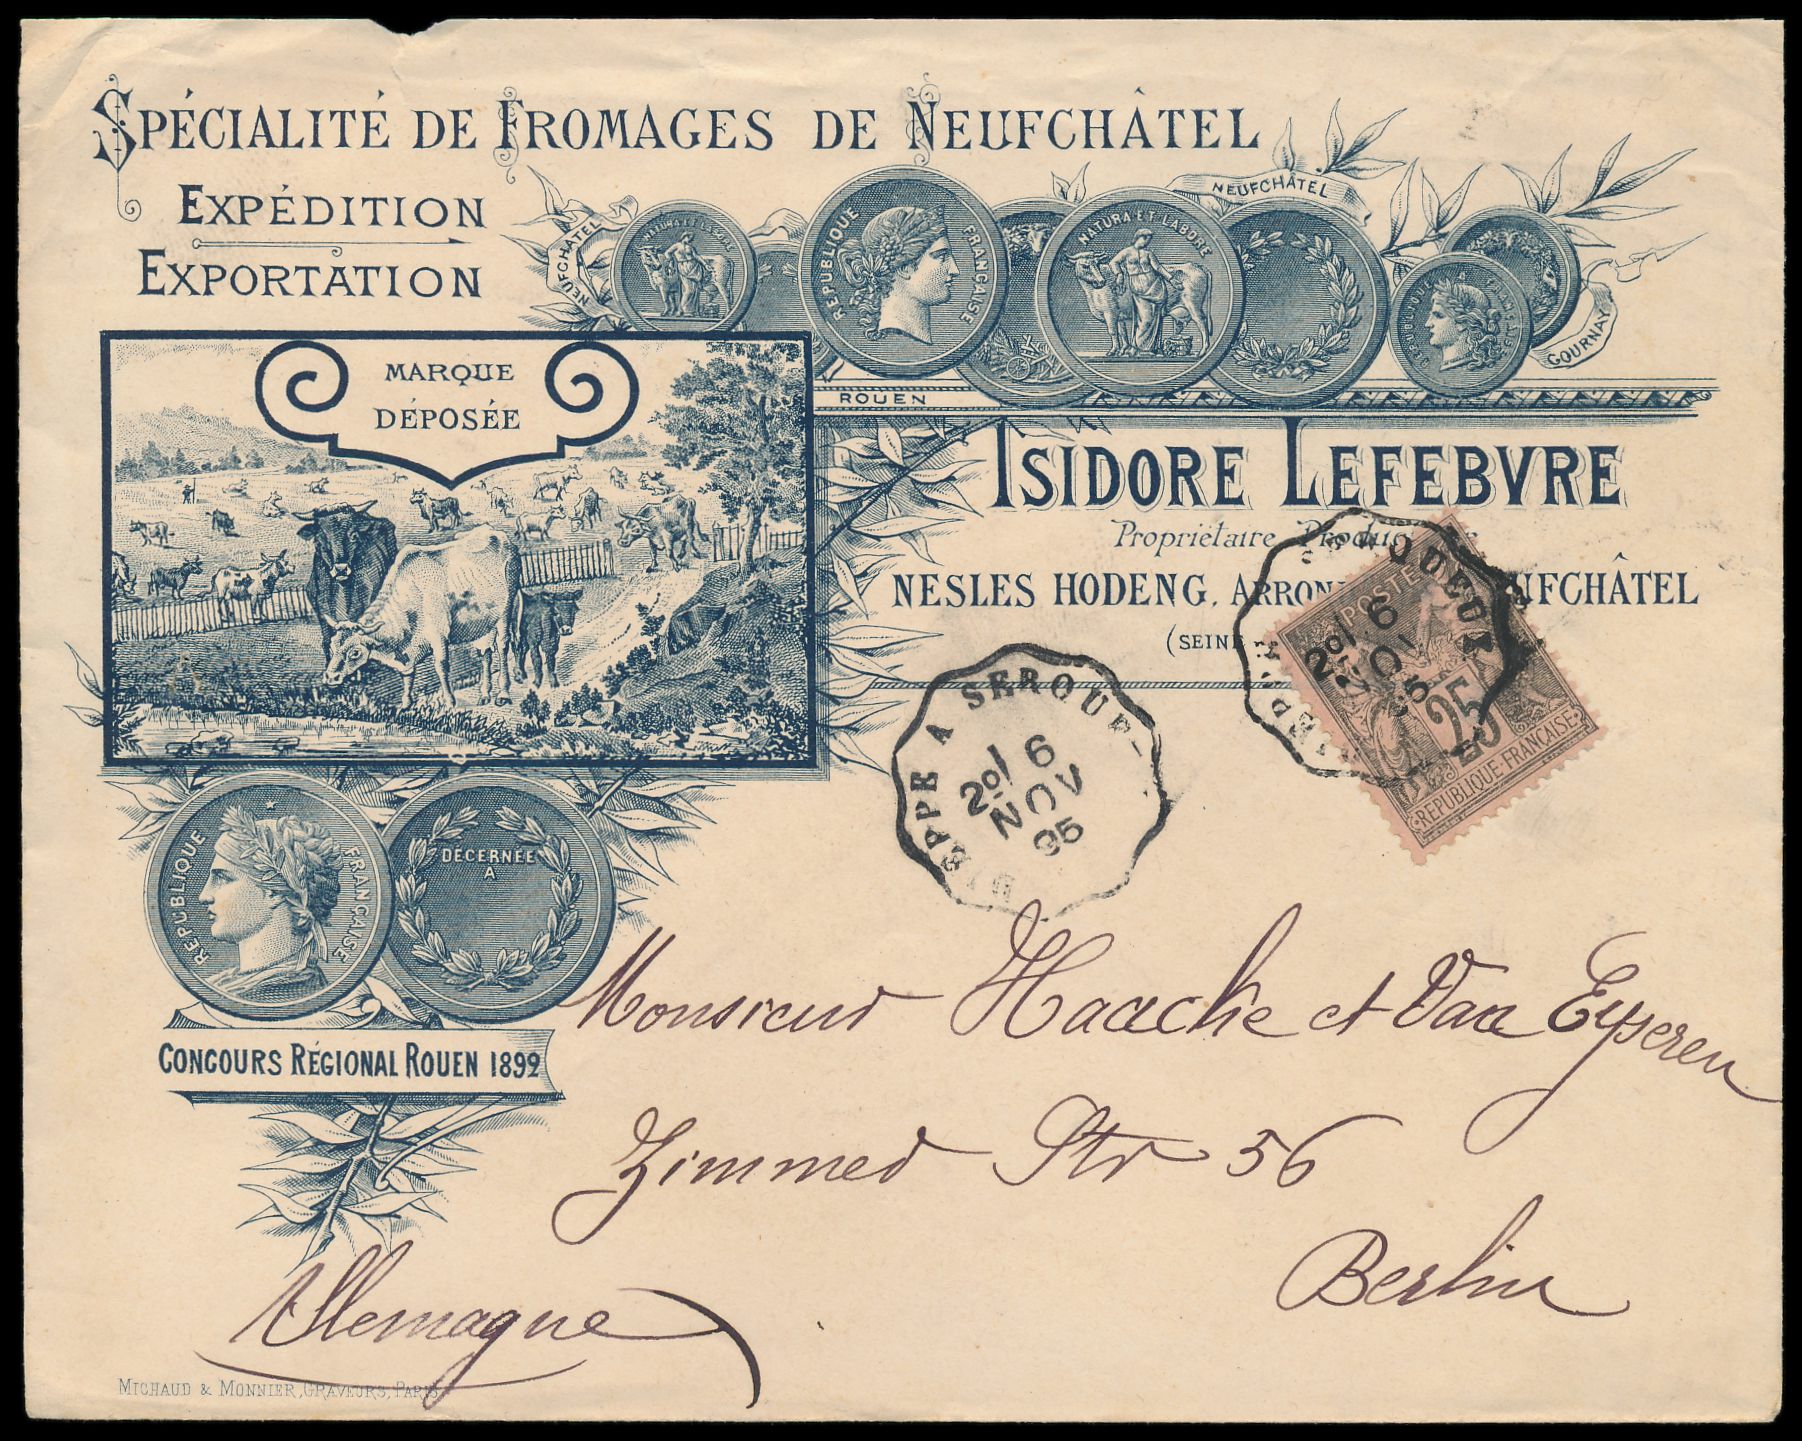 SPÉCIALITÉ DE FROMAGES DE NEUFCHÂTEL
EXPÉDITION
EXPORTATION
NEUFCHÂTEL
NATURA ET LABORE
RÉPUBLIQUE FRANÇAISE
NATURA ET LABORE
NEUFCHÂTEL
RÉPUBLIQUE FRANÇAISE
GOURNAY
ROUEN
MARQUE
DÉPOSÉE
ISIDORE LEFEBVRE
Propriétaire
NESLES HODENG, ARRON NFCHÂTEL
(SEINE
POSTE
25
REPUBLIQUE FRANÇAISE
2º/ 6
NOV
95
DIEPPE A SERQUE
2º/ 6
NOV
95
RÉPUBLIQUE FRANÇAISE
DÉCERNÉE
A
CONCOURS RÉGIONAL ROUEN 1892
Monsieur Haacke et Van Eyseren
Zimmer Str 56
Berlin
Allemagne
MICHAUD & MONNIER, GRAVEURS, PARIS